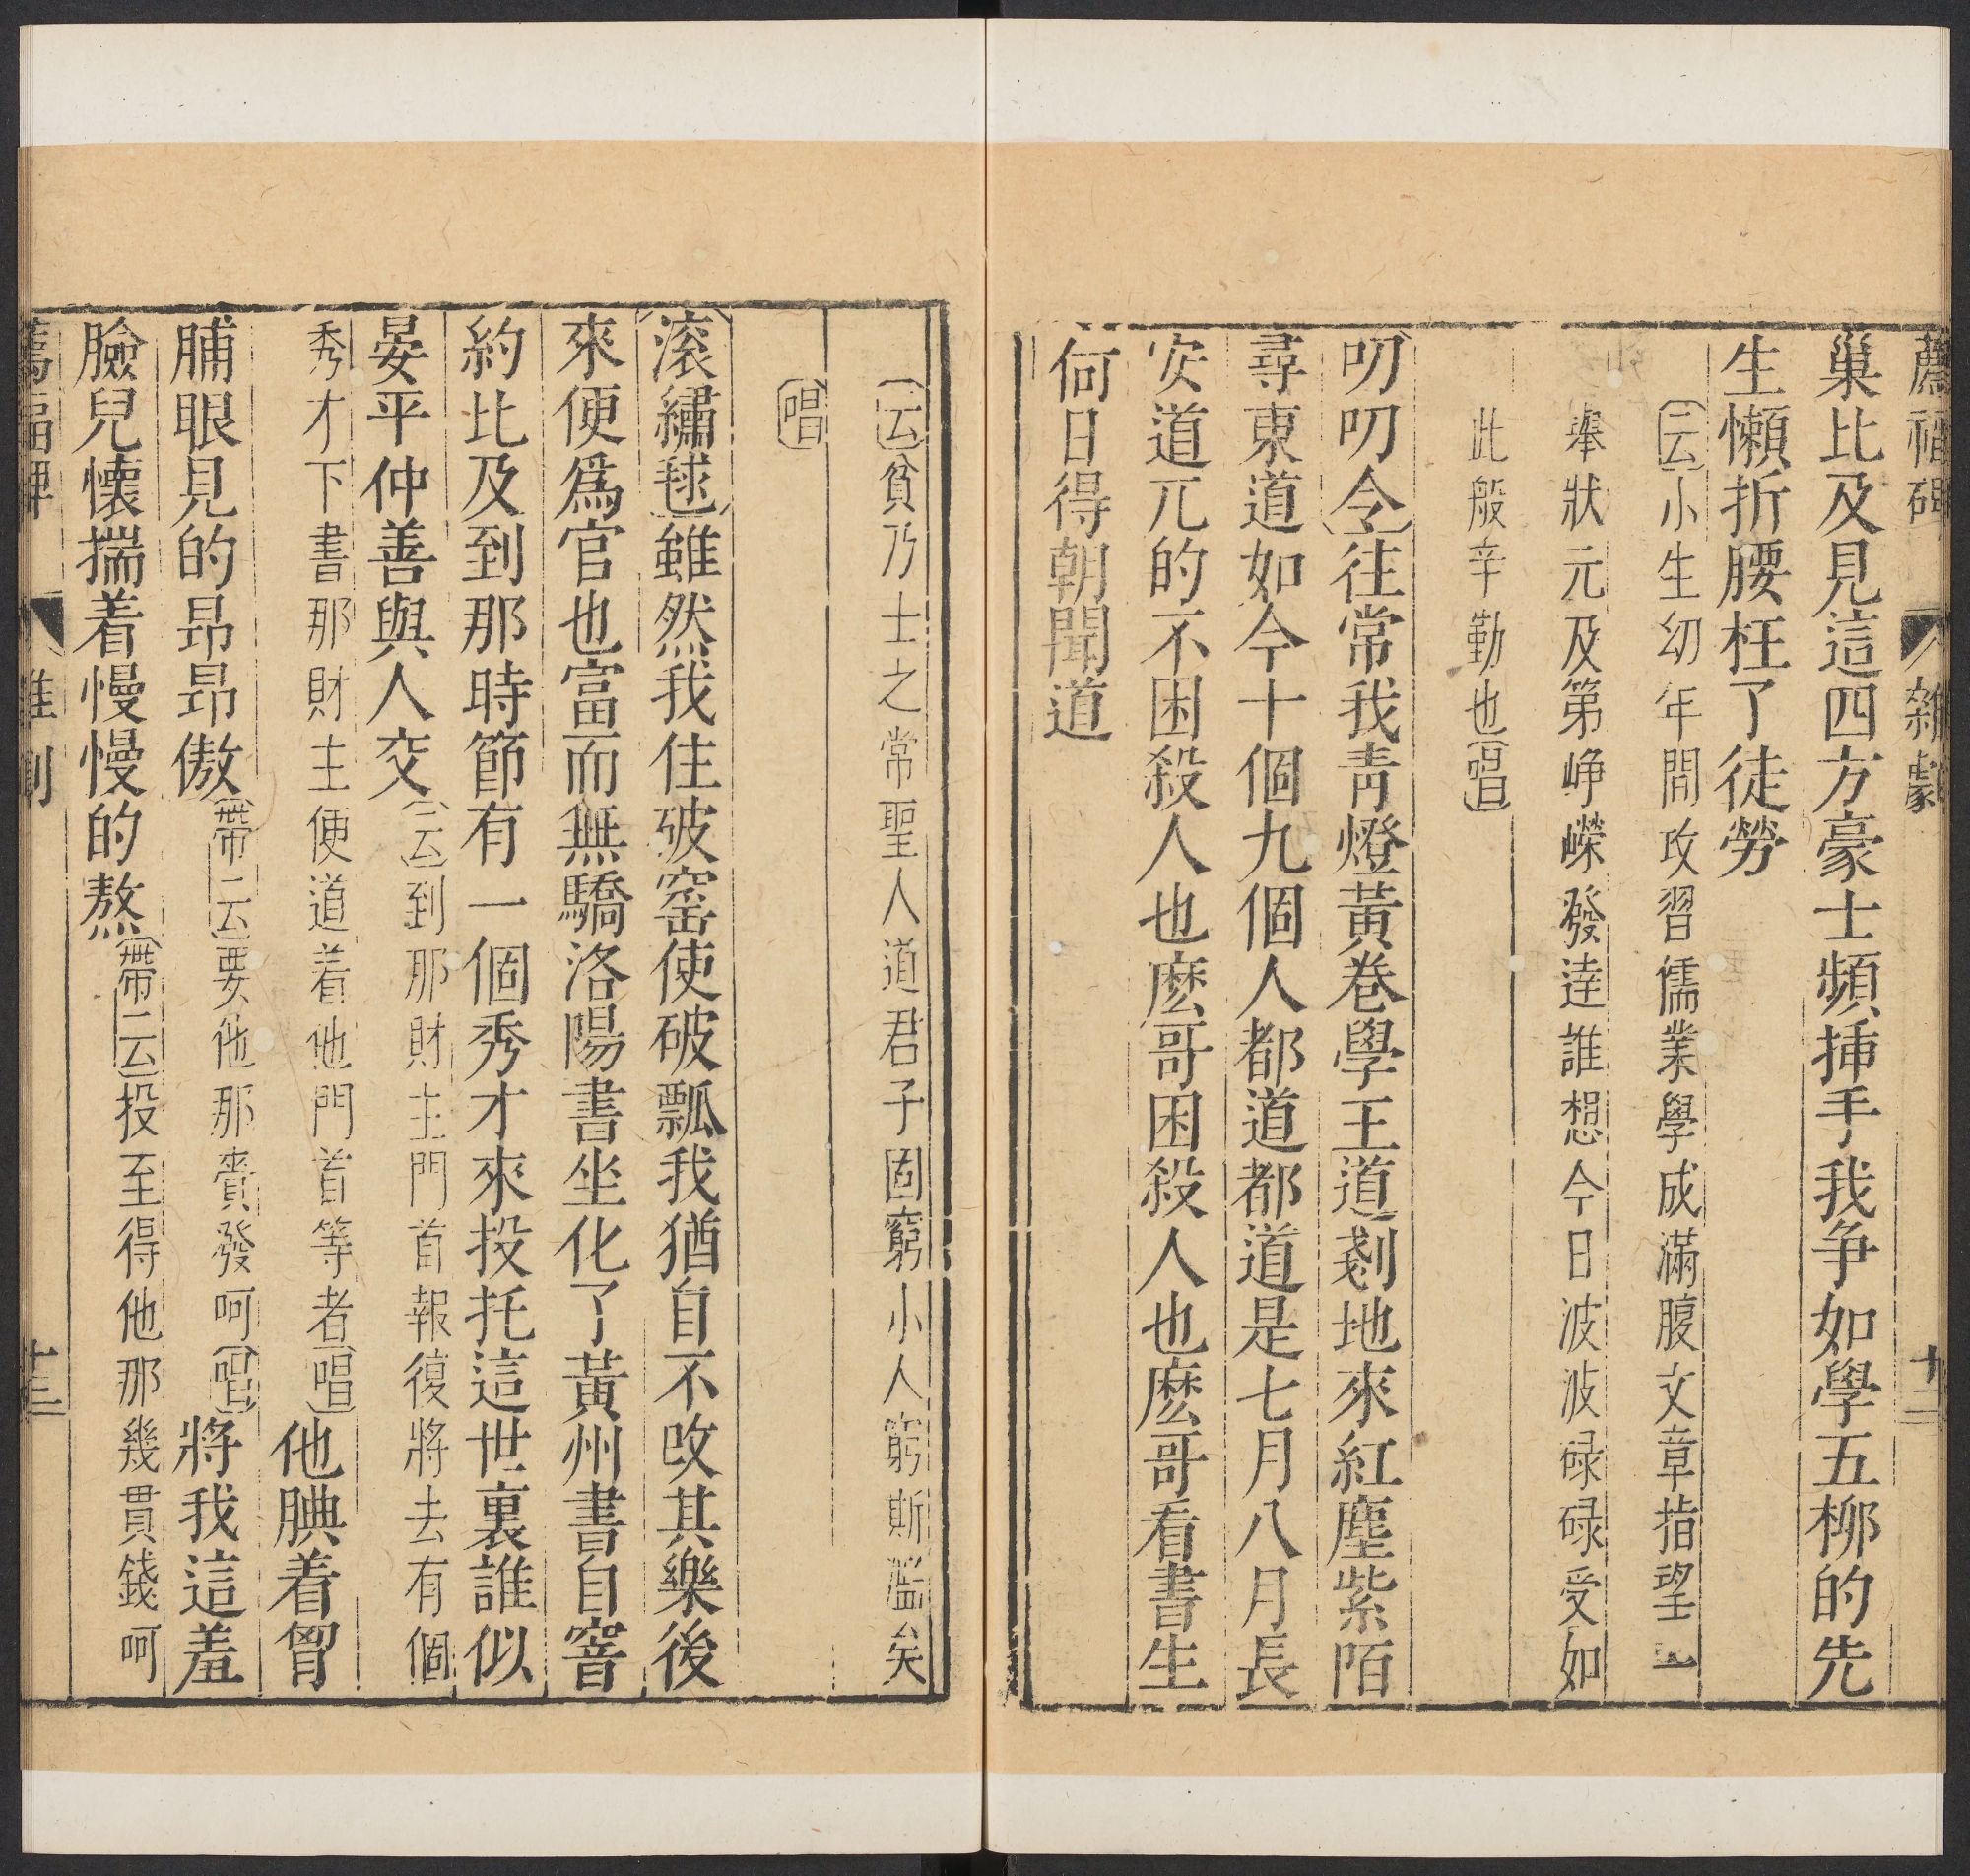 薦福碑 雜劇 十二
巢比及見這四方豪士頻揷手我争如學五栁的先
生懶折腰枉了徒勞
〔云〕小生幼年間攻習儒業學成滿腹文章指望一
舉狀元及第峥嶸發達誰想今日波波碌碌受如
此般辛勤也〔唱〕
叨叨令〕往常我青燈黃卷學王道剗地來紅塵紫陌
尋東道如今十個九個人都道都道是七月八月長
安道兀的不困殺人也麽哥困殺人也麽哥看書生
何日得朝聞道
〔云〕貧乃士之常聖人道君子固窮小人窮斯濫矣
〔唱〕
〔滚繡毬〕雖然我住破窑使破瓢我猶自不改其樂後
來便爲官也富而無驕洛陽書坐化了黃州書自窨
約比及到那時節有一個秀才來投托這世裏誰似
晏平仲善與人交〔云〕到那財主門首報復將去有個
秀才下書那財主便道着他門首等者〔唱〕他腆着胷
脯眼見的昂昂傲〔帶云〕要他那賫發呵〔唱〕將我這羞
臉兒懷揣着慢慢的熬〔帶云〕投至得他那幾貫錢呵
薦福碑 雜劇 十三